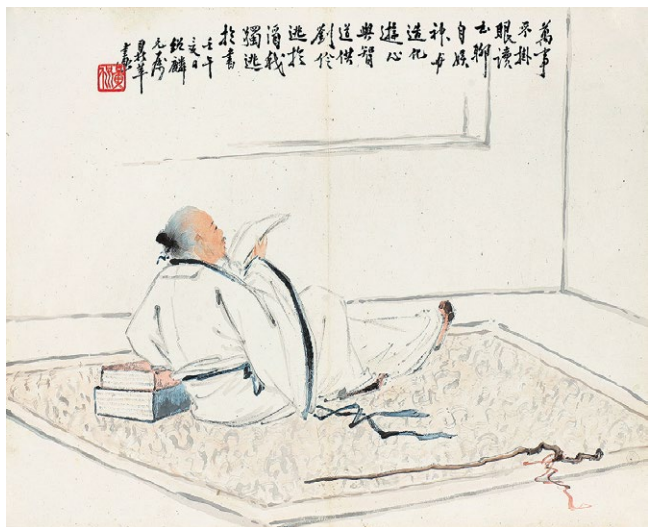 萬事
不掛
眼讀
書聊
自娛
神與
造化
遊心
與智
道
劉伶
逃於
酒我
獨逃
於書
壬午
夏日
紹麟